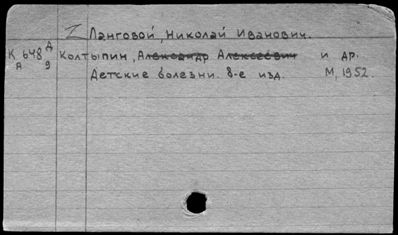 I Лангово́й, Николай Иванович.
К 648 Д Колтыпин, Александр Алексеевич и др.
А 9 Детские болезни. 8-е изд. М, 1952.